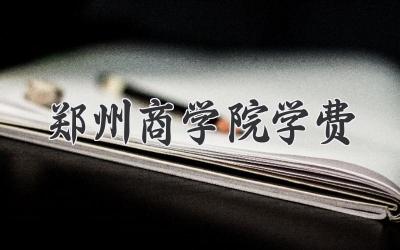 郑州商学院学费